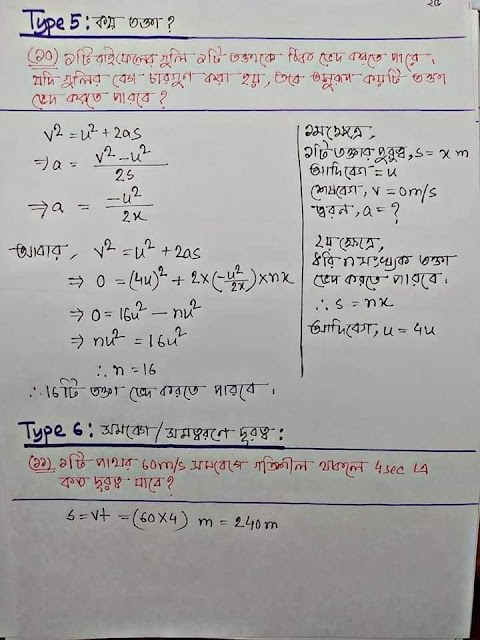 ২৫
Type 5: কয় তক্তা?
(১০) ১টি রাইফেলের গুলি ১টি তক্তাকে ঠিক ভেদ করতে পারে।
যদি গুলির বেগ চারগুণ করা হয়, তবে অনুরূপ কয়টি তক্তা
ভেদ করতে পারবে?
v² = u² + 2as
⇒ a = (v² − u²)/2s
⇒ a = −u²/2x
আবার, v² = u² + 2as
⇒ 0 = (4u)² + 2×(−u²/2x)×nx
⇒ 0 = 16u² − nu²
⇒ nu² = 16u²
∴ n = 16
∴ 16টি তক্তা ভেদ করতে পারবে।
১মক্ষেত্রে,
১টি তক্তার পুরুত্ব, s = x m
আদিবেগ = u
শেষবেগ, v = 0m/s
ত্বরণ, a = ?
২য় ক্ষেত্রে,
ধরি n সংখ্যক তক্তা
ভেদ করতে পারবে।
∴ s = nx
আদিবেগ, u = 4u
Type 6: সমবেগে/সমত্বরণে দূরত্ব:
(১১) ১টি পাথর 60m/s সমবেগে গতিশীল থাকলে 4sec এ
কত দূরত্ব যাবে?
s = vt = (60×4) m = 240m